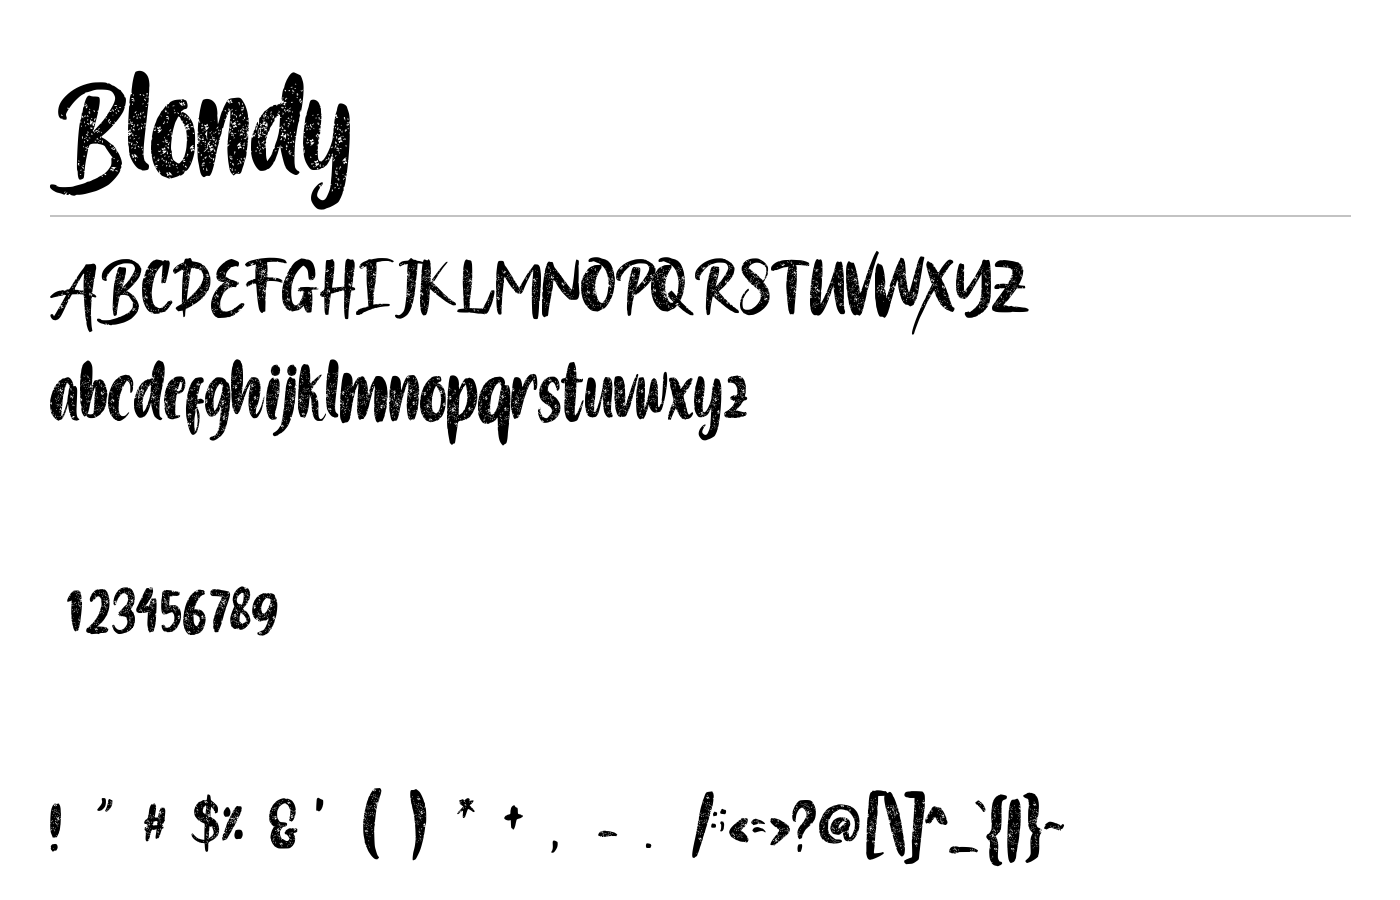 Blondy
ABCDEFGHIJKLMNOPQRSTUVWXYZ
abcdefghijklmnopqrstuvwxyz
123456789
! " # $% & ' ( ) * + , - . /:;<=>?@[\]^_`{|}~